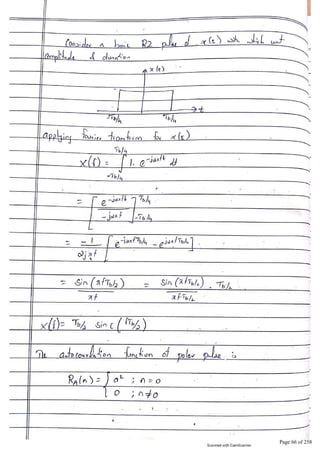 Consider a basic RZ pulse of x(t) with unit
amplitude & duration
x(t)
-Tb/4 Tb/4 t
applying fourier transform for x(t)
X(f) = ∫_{-Tb/4}^{Tb/4} 1. e^{-j2πft} dt
= [e^{-j2πft} / -j2πf]_{-Tb/4}^{Tb/4}
= -1/2jπf [e^{-j2πfTb/4} - e^{j2πfTb/4}]
= sin(πfTb/2) / πf = sin(πfTb/2) / πfTb/2 . Tb/2
X(f) = Tb/2 sinc(fTb/2)
The autocorrelation function of polar pulse is
RA(n) = { a² ; n=0
0 ; n≠0
Scanned with CamScanner
Page 66 of 258